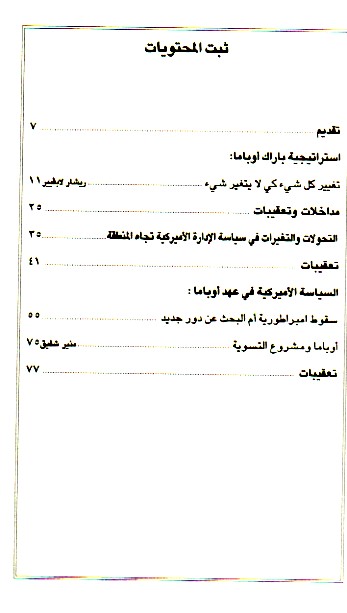 ثبت المحتويات
تقديم ................ ٧
استراتيجية باراك أوباما:
تغيير كل شيء كي لا يتغير شيء ................ ريشار لابفيير ١١
مداخلات وتعقيبات ................ ٢٥
التحولات والتغيرات في سياسة الإدارة الأميركية تجاه المنطقة ................ ٣٥
تعقيبات ................ ٤١
السياسة الأميركية في عهد أوباما :
سقوط امبراطورية أم البحث عن دور جديد ................ ٥٥
أوباما ومشروع التسوية ................ منير شفيق ٧٥
تعقيبات ................ ٧٧